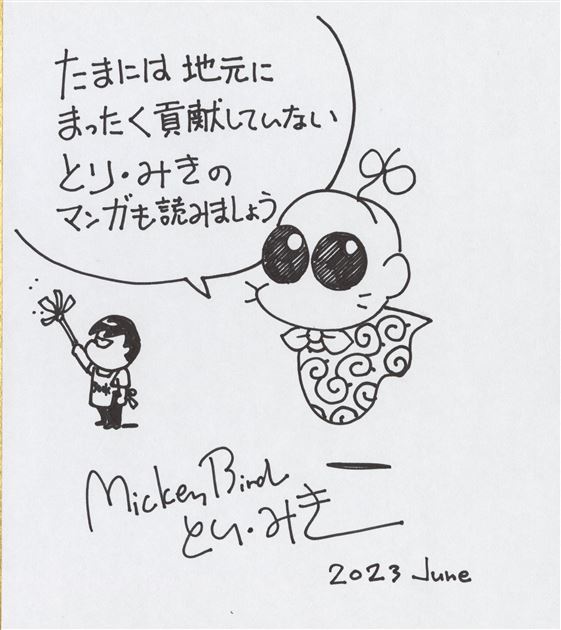 たまには地元に
まったく貢献していない
とり・みきの
マンガも読みましょう
Mickey Bird
とり・みき
2023 June